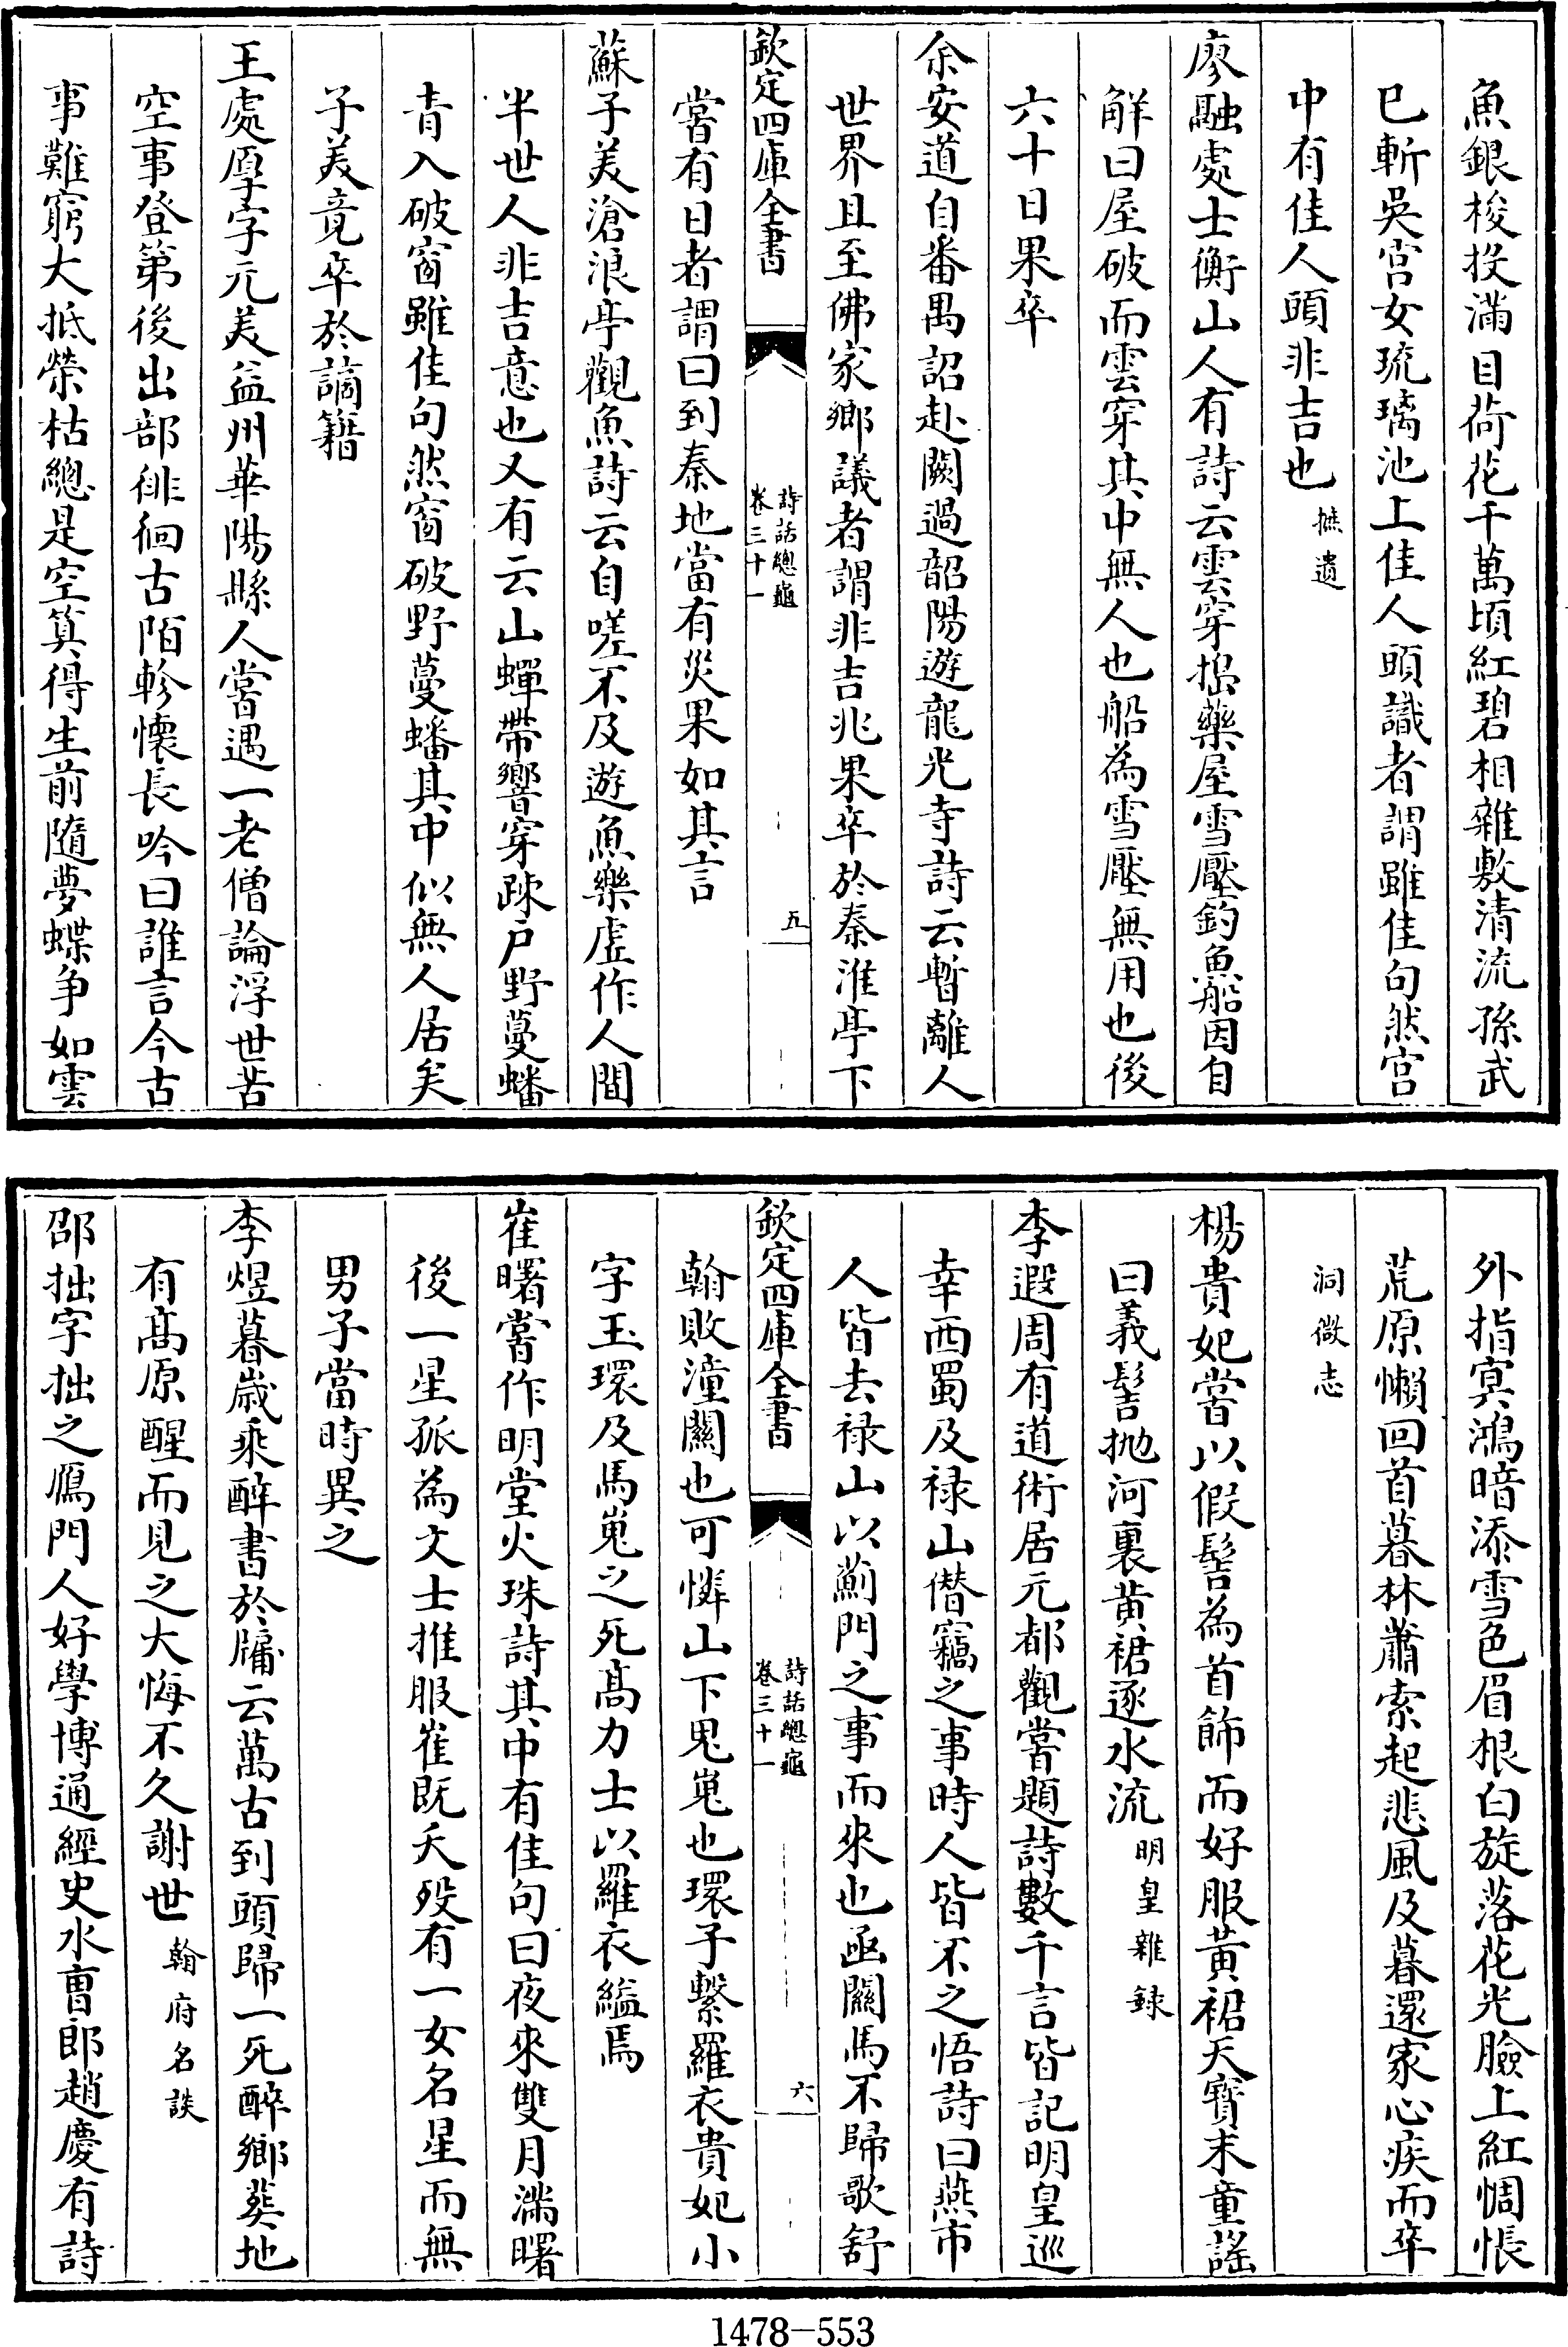 魚銀梭投滿目荷花千萬頃紅碧相雜敷清流孫武
已斬吳宮女琉璃池上佳人頭識者謂雖佳句然宮
中有佳人頭非吉也摭遺
廖融處士衡山人有詩云雲穿搗藥屋雪壓釣魚船因自
解曰屋破而雲穿其中無人也船為雪壓無用也後
六十日果卒
余安道自番禺詔赴闕過韶陽遊龍光寺詩云暫離人
世界且至佛家鄉議者謂非吉兆果卒於秦淮亭下
欽定四庫全書
詩話總龜
卷三十一
五
嘗有日者謂曰到秦地當有災果如其言
蘇子美滄浪亭觀魚詩云自嗟不及遊魚樂虛作人間
半世人非吉意也又有云山蟬帶響穿疎戶野蔓蟠
青入破窗雖佳句然窗破野蔓蟠其中似無人居矣
子美竟卒於謫籍
王處厚字元美益州華陽縣人嘗遇一老僧論浮世苦
空事登第後出部徘徊古陌軫懷長吟曰誰言今古
事難窮大抵榮枯總是空算得生前隨夢蝶争如雲
外指冥鴻暗添雪色眉根白旋落花光臉上紅惆悵
荒原懶回首暮林蕭索起悲風及暮還家心疾而卒
洞微志
楊貴妃嘗以假髻為首飾而好服黄裙天寶末童謡
曰義髻抛河裏黄裙逐水流明皇雜録
李遐周有道術居元都觀嘗題詩數千言皆記明皇巡
幸西蜀及禄山僭竊之事時人皆不之悟詩曰燕市
人皆去禄山以薊門之事而來也函關馬不歸歌舒
欽定四庫全書
詩話總龜
卷三十一
六
翰敗潼關也可憐山下鬼嵬也環子繫羅衣貴妃小
字玉環及馬嵬之死髙力士以羅衣縊焉
崔曙嘗作明堂火珠詩其中有佳句曰夜來雙月滿曙
後一星孤為文士推服崔既夭殁有一女名星而無
男子當時異之
李煜暮歲乘醉書於牖云萬古到頭歸一死醉鄉葬地
有髙原醒而見之大悔不久謝世翰府名談
邵拙字拙之鴈門人好學博通經史水曹郎趙慶有詩
1478-553